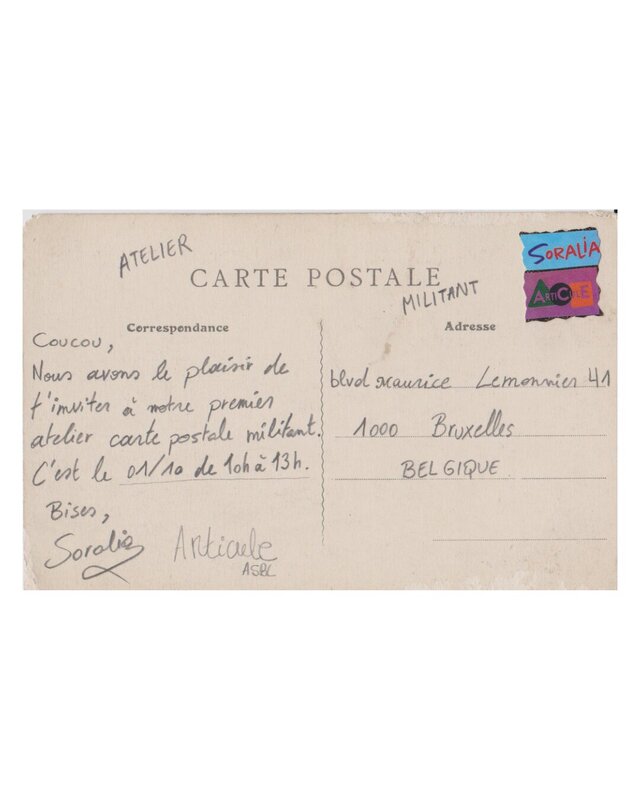 ATELIER
CARTE POSTALE
MILITANT
SORALIA
ARTICULE
Correspondance
Coucou,
Nous avons le plaisir de
t'inviter à notre premier
atelier carte postale militant.
C'est le 01/10 de 10h à 13h.
Bises,
Soralia
Articule
ASBL
Adresse
blvd Maurice Lemonnier 41
1000 Bruxelles
BELGIQUE